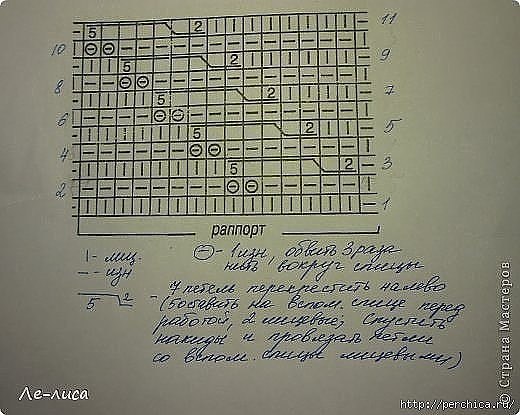 11
5 2
10
9
5 2
8
7
5 2
6
5
5 2
4
3
5 2
2
1
раппорт
| - лиц.
— - изн
⊖ - 1 изн, обвить 3 раза
нить вокруг спицы
5 2 - 7 петель перекрестить налево
(5 оставить на вспом. спице перед
работой, 2 лицевые; спустить
накиды и провязать петли
со вспом. спицы лицевыми)
Ле-лиса
http://perchica.ru/
© Страна Мастеров